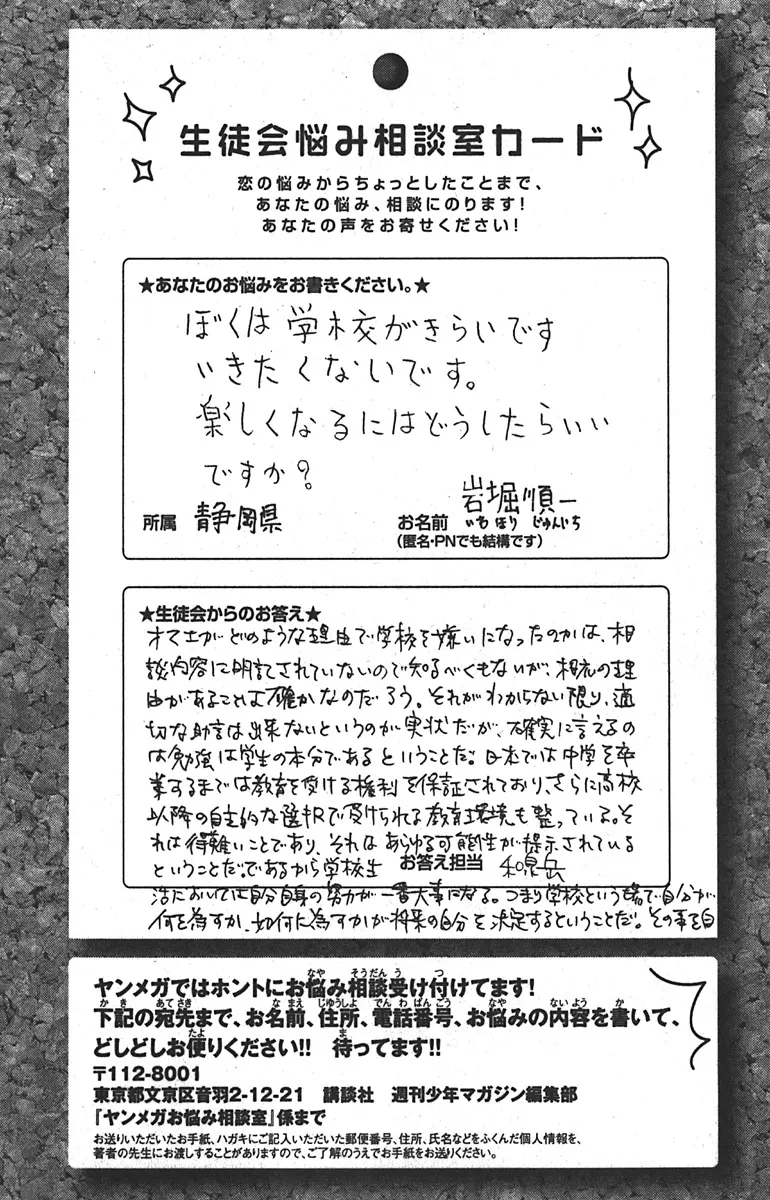 生徒会悩み相談室カード
恋の悩みからちょっとしたことまで、
あなたの悩み、相談にのります!
あなたの声をお寄せください!
★あなたのお悩みをお書きください。★
ぼくは学校がきらいです
いきたくないです。
楽しくなるにはどうしたらいい
ですか?
所属 静岡県
お名前 岩堀順一
いわほり じゅんいち
(匿名・PNでも結構です)
★生徒会からのお答え★
オマエがどのような理由で学校を嫌いになったのかは、相
談内容に明記されていないので知るべくもないが、相応の理
由があることは確かなのだろう。それがわからない限り、適
切な助言は出来ないというのが実状だが、確実に言えるの
は勉強は学生の本分であるということだ。日本では中学を卒
業するまでは教育を受ける権利を保証されており、さらに高校
以降の自主的な選択で受けられる教育環境も整っている。そ
れは得難いことであり、それはあらゆる可能性が提示されている
ということだ。であるから学校生
お答え担当 和泉岳
活においては自分自身の努力が一番大事になる。つまり学校という場で自分が
何を為すか、如何に為すかが将来の自分を決定するということだ。その事を自
ヤンメガではホントにお悩み相談受け付けてます!
下記の宛先まで、お名前、住所、電話番号、お悩みの内容を書いて、
どしどしお便りください!! 待ってます!!
〒112-8001
東京都文京区音羽2-12-21 講談社 週刊少年マガジン編集部
『ヤンメガお悩み相談室』係まで
お送りいただいたお手紙、ハガキにご記入いただいた郵便番号、住所、氏名などをふくんだ個人情報を、
著者の先生にお渡しすることがありますので、ご了解のうえでお手紙をお送りください。